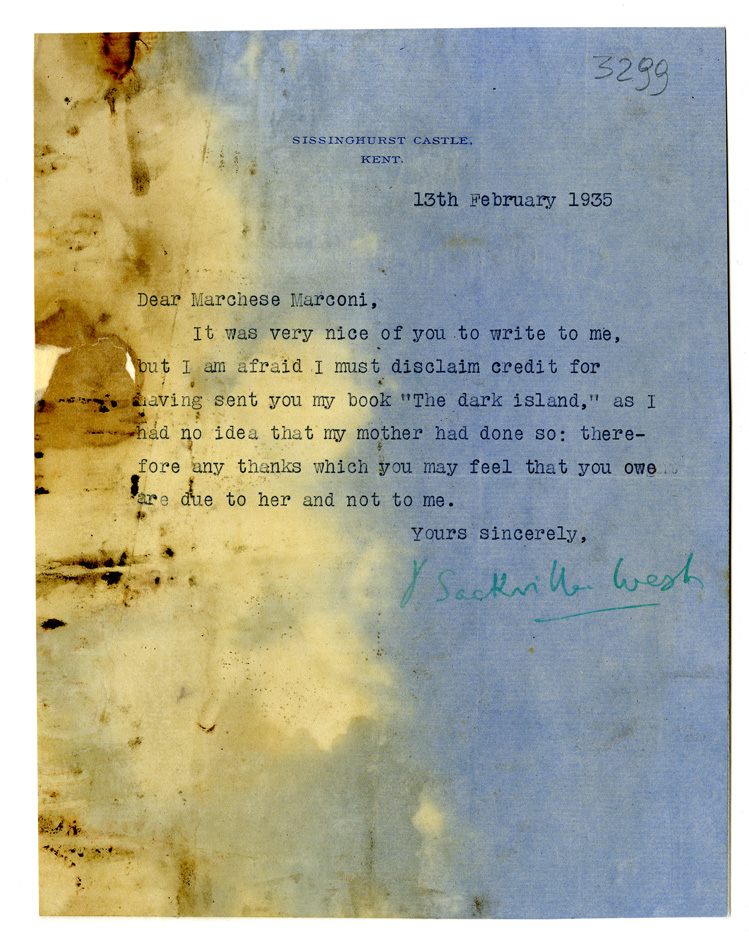 3299
SISSINGHURST CASTLE,
KENT.
13th February 1935
Dear Marchese Marconi,
It was very nice of you to write to me,
but I am afraid I must disclaim credit for
having sent you my book "The dark island," as I
had no idea that my mother had done so: there-
fore any thanks which you may feel that you owe
are due to her and not to me.
Yours sincerely,
V Sackville West